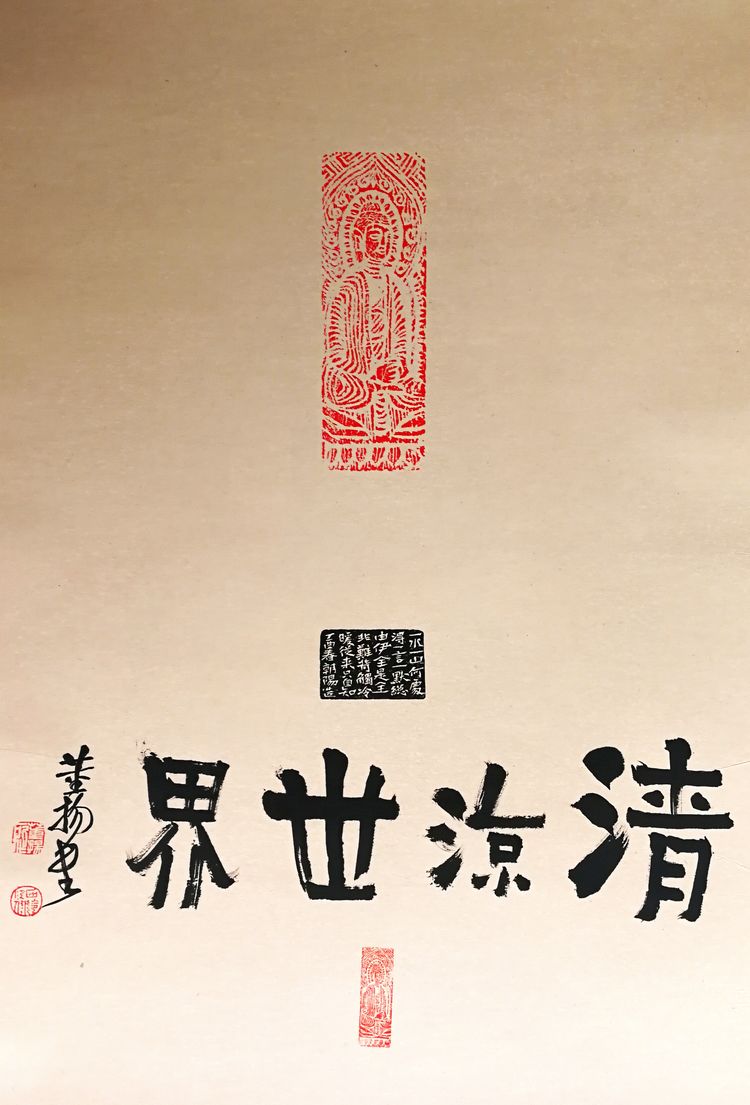 一水一山何處
得一言一默總
由伊全是全
非難背觸冷
暖從來只自知
丁酉春朝陽造
清涼世界